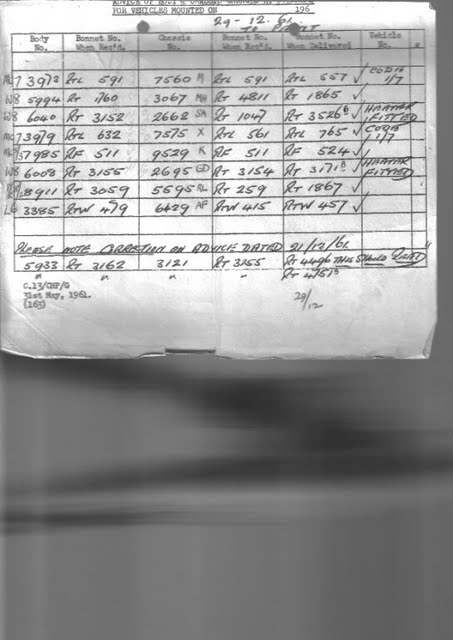 FOR VEHICLES MOUNTED ON 29-12-61 196
Body No. Bonnet No. When Rec'd. Chassis No. Bonnet No. When Rec'd. Bonnet No. When Delivered Vehicle No.
7397 RTL 591 7560 M RTL 591 RTL 557 ✓ CODE 1/7
W8 5994 RT 760 3067 MH RT 4811 RT 1865 ✓
W8 6040 RT 3152 2662 SM RT 1047 RT 3526 B ✓ HEATER FITTED
7 3979 RTL 632 7575 X RTL 561 RTL 765 ✓ CODE 1/7
7985 RF 511 9529 K RF 511 RF 524 ✓
W8 6008 RT 3155 2695 GD RT 3154 RT 3171 B ✓ HEATER FITTED
8911 RT 3059 5595 AL RT 259 RT 1867 ✓
L6 3385 RTW 479 6429 AF RTW 415 RTW 457 ✓
PLEASE NOTE CORRECTION ON ADVICE DATED 21/12/61
5933 RT 3162 3121 RT 3155 RT 4496 THIS SHOULD READ
" " " " RT 4751 B
C.13/CHF/G
31st May, 1961.
(163)
29/12